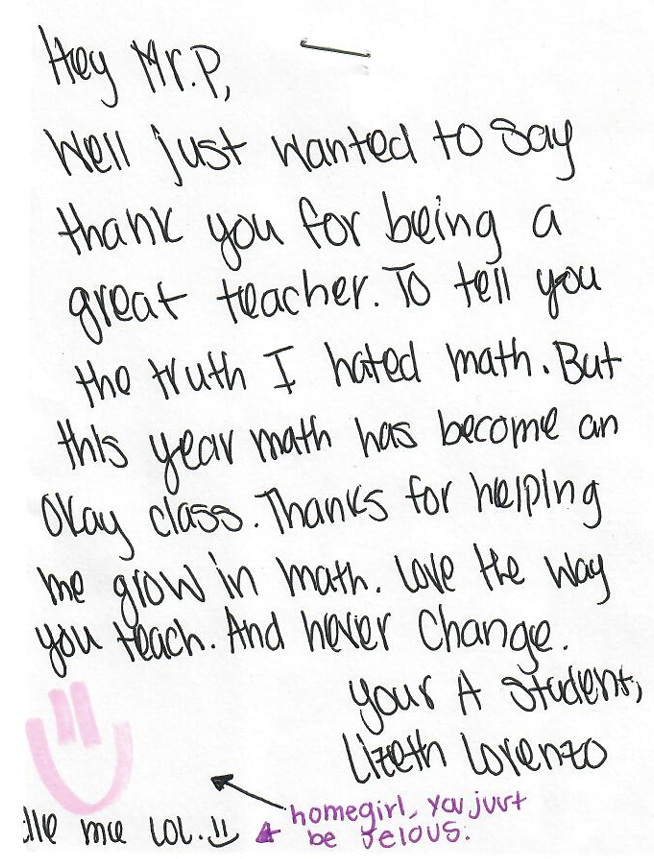 Hey Mr.P,
Well just wanted to say
thank you for being a
great teacher. To tell you
the truth I hated math. But
this year math has become an
okay class. Thanks for helping
me grow in math. Love the way
you teach. And never Change.
your A student,
Lizeth Lorenzo
homegirl, you just
be jelous.
me LOL.